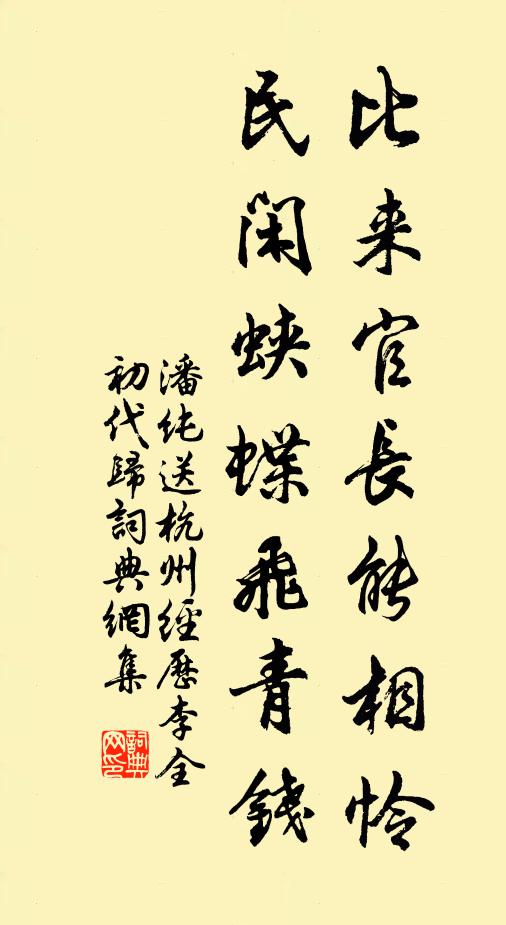 比来官長能相怜
民闲蛱蝶飛青錢
潘纯送杭州經歷李全
初代歸詞典網集
詞典網印